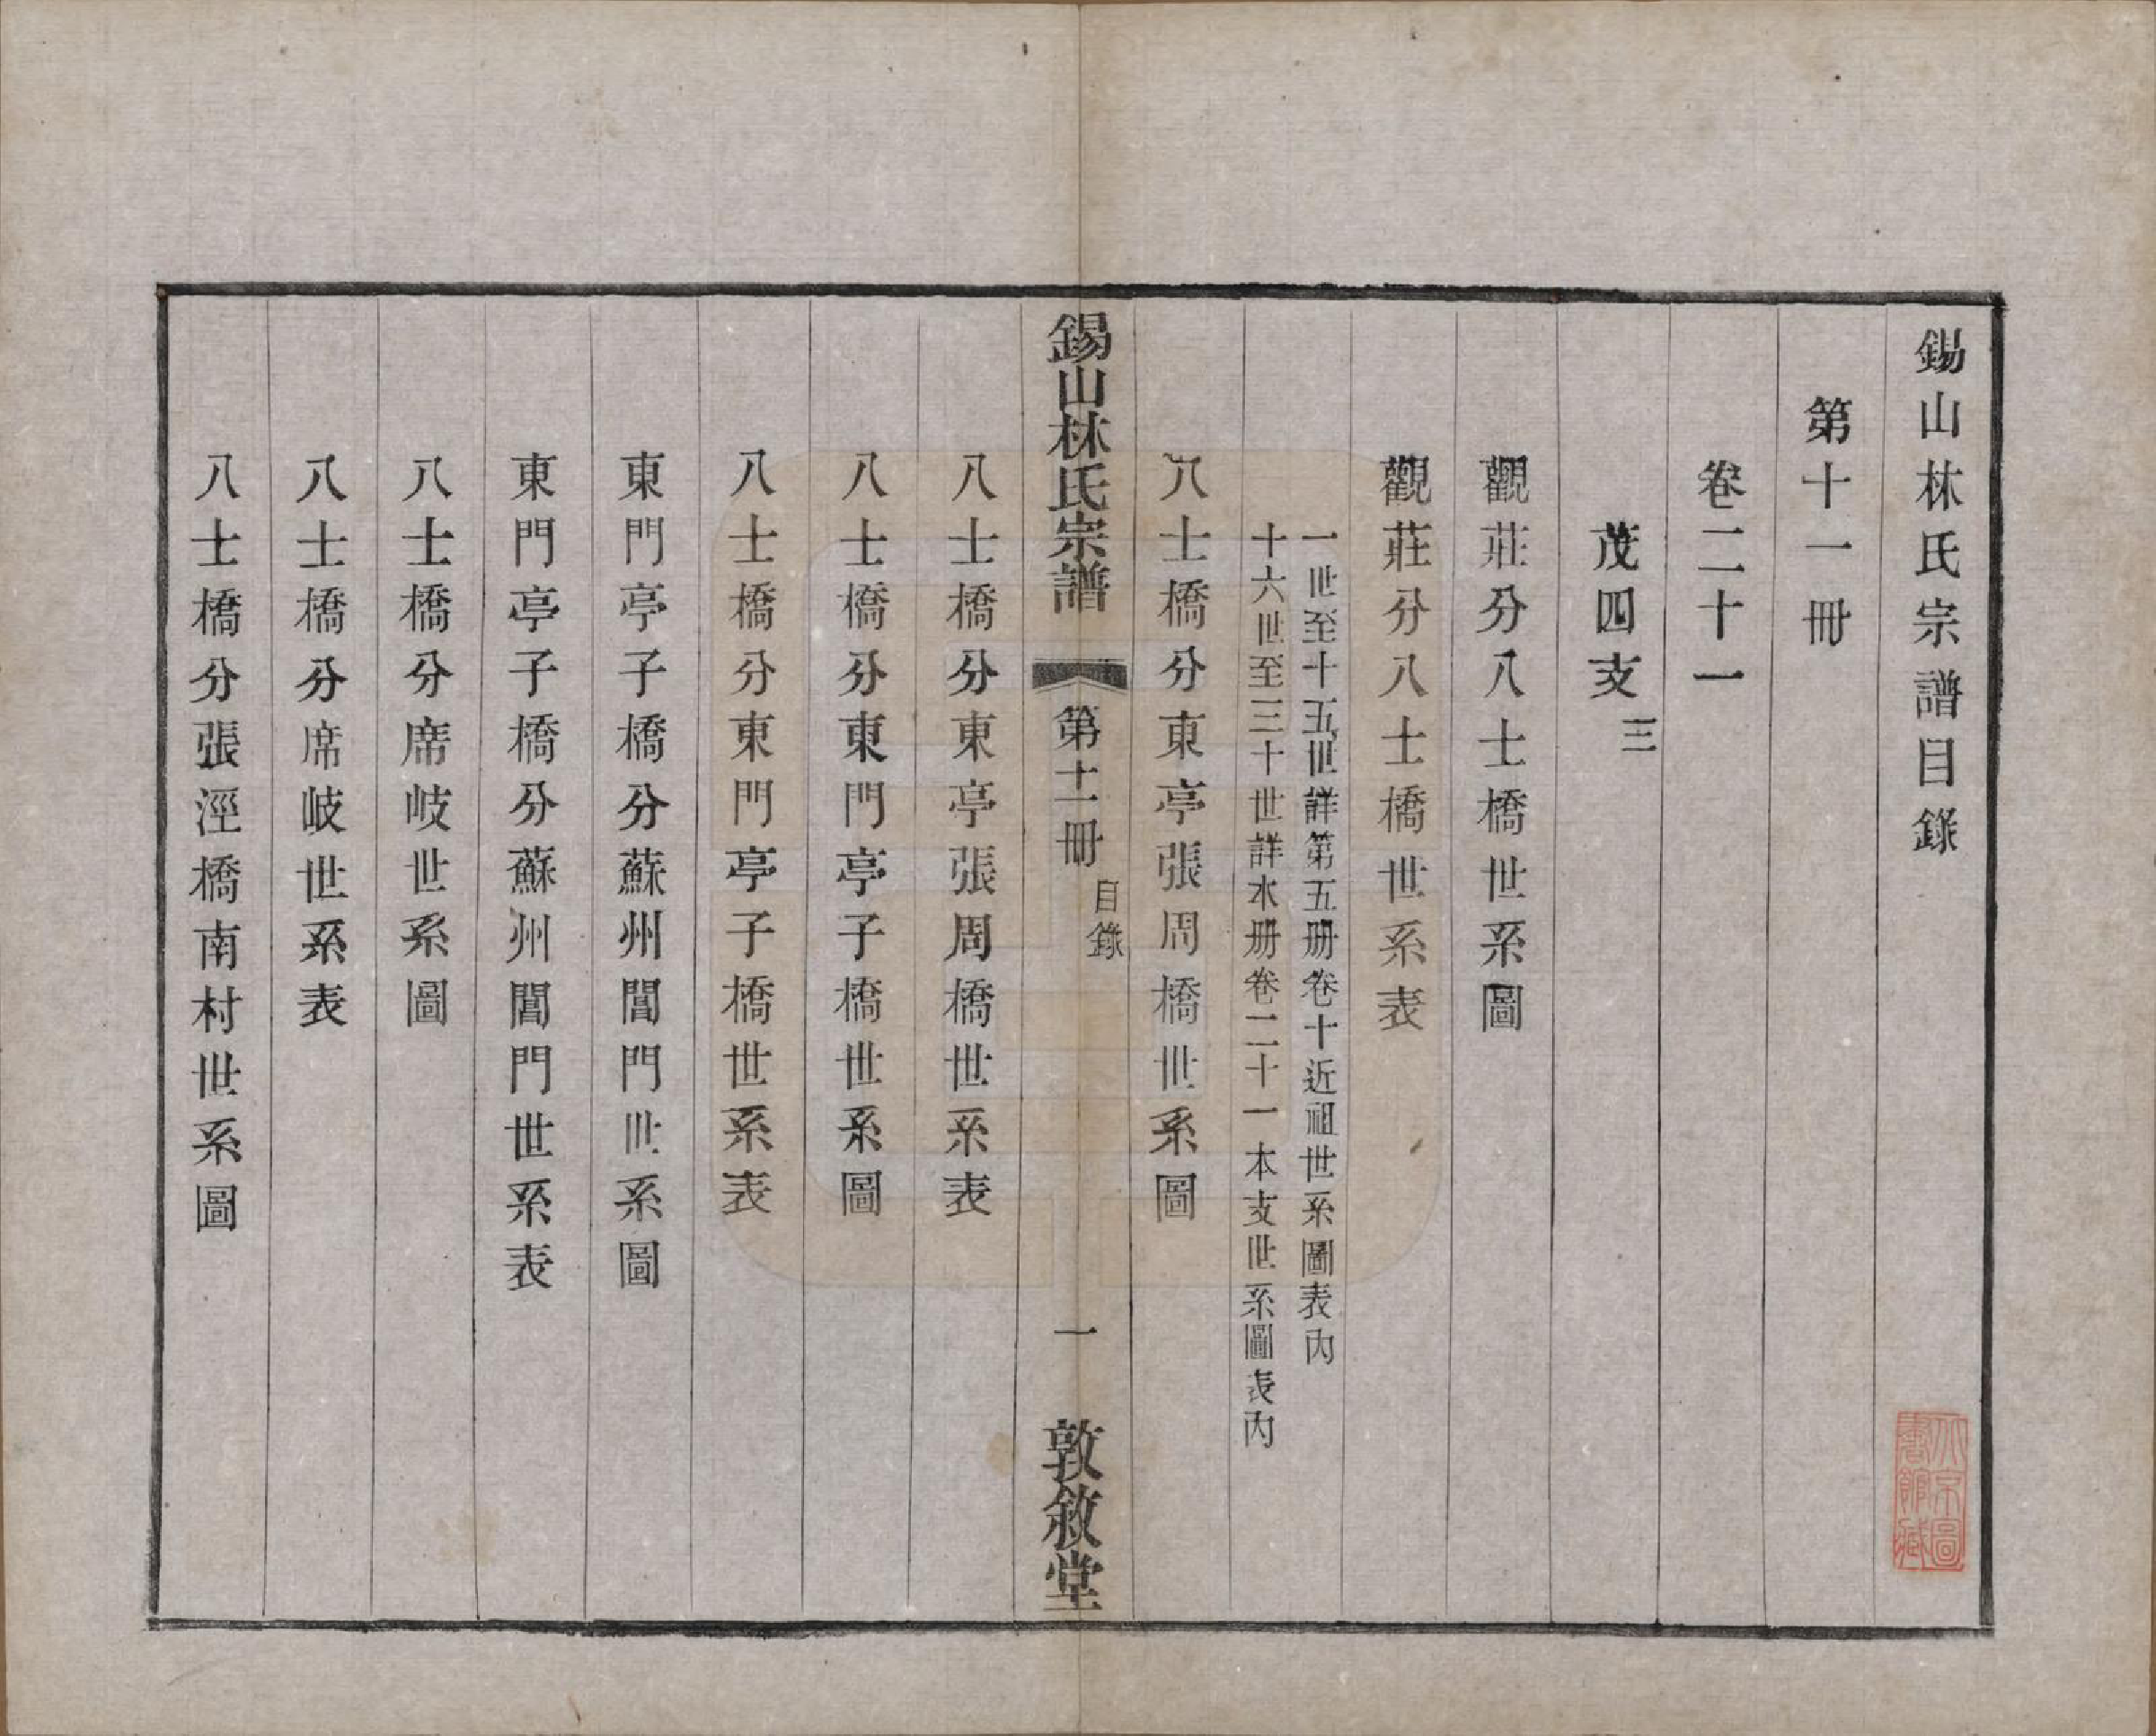 錫山林氏宗譜目錄
第十一冊
卷二十一
茂四支三
觀莊分八士橋世系圖
觀莊分八士橋世系表
一世至十五世詳第五册卷十近祖世系圖表內
十六世至三十世詳本册卷二十一本支世系圖表內
八士橋分東亭張周橋世系圖
錫山林氏宗譜
第十一冊
目錄
一
敦敘堂
八士橋分東亭張周橋世系表
八士橋分東門亭子橋世系圖
八士橋分東門亭子橋世系表
東門亭子橋分蘇州閶門世系圖
東門亭子橋分蘇州閶門世系表
八士橋分席岐世系圖
八士橋分席岐世系表
八士橋分張涇橋南村世系圖